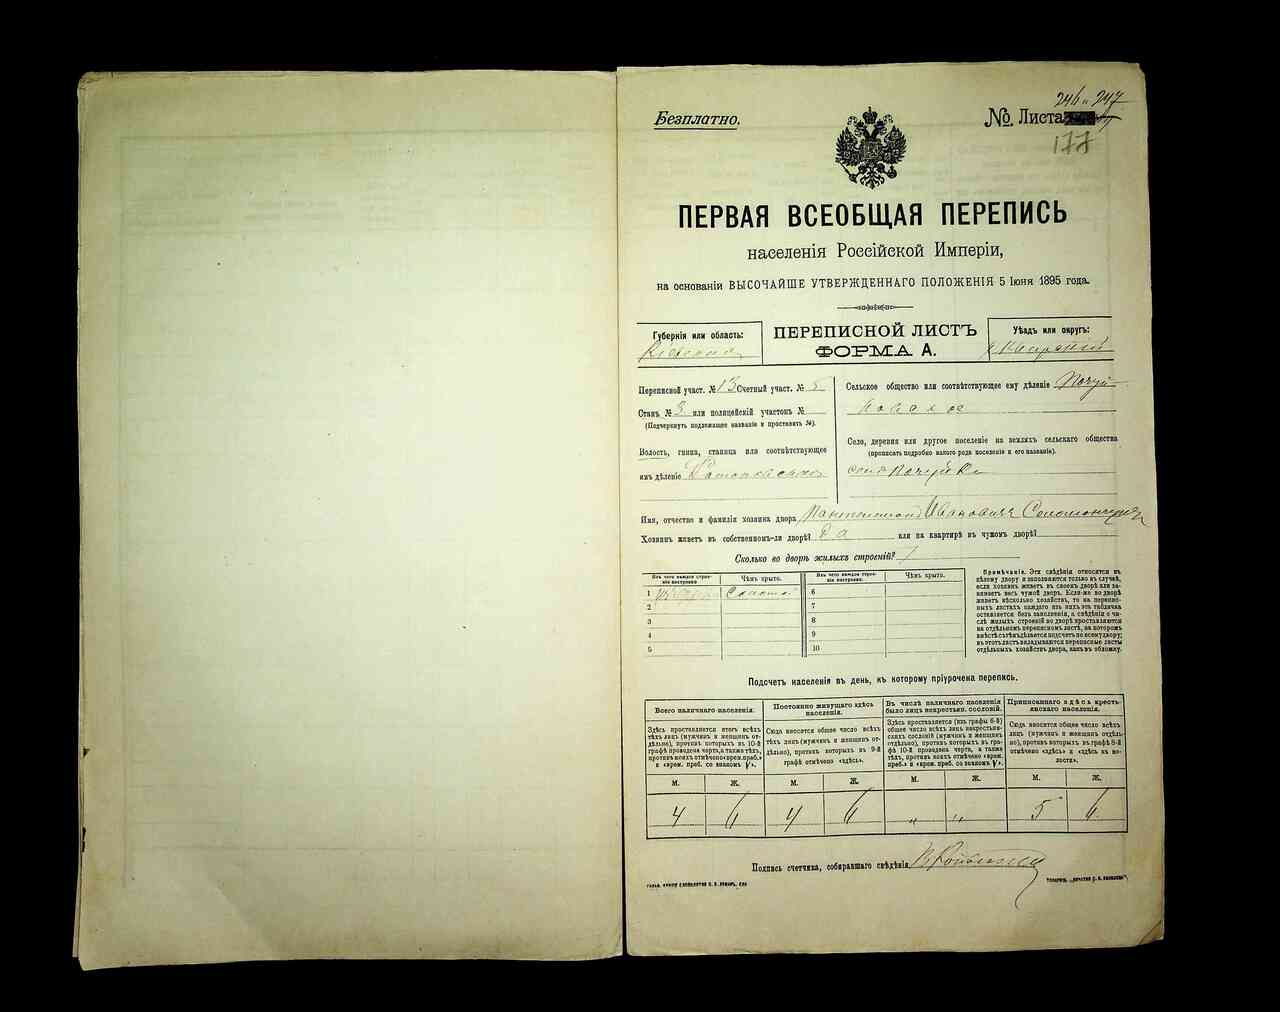 Безплатно.
246 и 247
№ Листа
177
ПЕРВАЯ ВСЕОБЩАЯ ПЕРЕПИСЬ
населенія Россійской Имперіи,
на основаніи ВЫСОЧАЙШЕ УТВЕРЖДЕННАГО ПОЛОЖЕНІЯ 5 Іюня 1895 года.
Губернія или область:
Кіевская
ПЕРЕПИСНОЙ ЛИСТЪ
ФОРМА А.
Уѣздъ или округъ:
Сквирскій
Переписной участ. № 13 Счетный участ. № 5
Станъ № 3 или полицейскій участокъ №
(Подчеркнуть подлежащее названіе и проставить №).
Волость, гмина, станица или соотвѣтствующее
имъ дѣленіе
Сельское общество или соотвѣтствующее ему дѣленіе Почуй-
Село, деревня или другое поселеніе на земляхъ сельскаго общества
(прописать подробно какого рода поселеніе и его названіе).
село Почуйки
Имя, отчество и фамилія хозяина двора Пантелеймонъ Ивановичъ
Хозяинъ живетъ въ собственномъ-ли дворѣ? да или на квартирѣ въ чужомъ дворѣ?
Сколько во дворѣ жилыхъ строеній? 1
Изъ чего каждое строе-
ніе построено.
Чѣмъ крыто.
Изъ чего каждое строе-
ніе построено.
Чѣмъ крыто.
1 Соломой 6
2 7
3 8
4 9
5 10
Примѣчаніе. Эти свѣдѣнія относятся къ
цѣлому двору и заполняются только въ случаѣ,
если хозяинъ живетъ въ своемъ дворѣ или за-
нимаетъ весь чужой дворъ. Если-же во дворѣ
живетъ нѣсколько хозяйствъ, то на перепис-
ныхъ листахъ каждаго изъ нихъ эта табличка
оставляется безъ заполненія, а свѣдѣнія о чи-
слѣ жилыхъ строеній во дворѣ проставляются
на отдѣльномъ переписномъ листѣ, на которомъ
вмѣстѣ съ тѣмъ дѣлается подсчетъ по всему двору;
въ этотъ листъ вкладываются переписные листы
отдѣльныхъ хозяйствъ двора, какъ въ обложку.
Подсчетъ населенія въ день, къ которому пріурочена перепись.
Всего наличнаго населенія.
Постоянно живущаго здѣсь
населенія.
Въ числѣ наличнаго населенія
было лицъ некрестьян. сословій.
Приписаннаго здѣсь кресть-
янскаго населенія.
Здѣсь проставляется итогъ всѣхъ
тѣхъ лицъ (мужчинъ и женщинъ от-
дѣльно), противъ которыхъ въ 10-й
графѣ проведена черта, а также тѣхъ,
противъ коихъ отмѣчено «врем. преб.»
и «врем. преб. со знакомъ V».
Сюда вносится общее число всѣхъ
тѣхъ лицъ (мужчинъ и женщинъ от-
дѣльно), противъ которыхъ въ 9-й
графѣ отмѣчено «здѣсь».
Здѣсь проставляется (изъ графы 6-й)
общее число всѣхъ лицъ некрестьян-
скихъ сословій (мужчинъ и женщинъ
отдѣльно), противъ которыхъ въ гра-
фѣ 10-й проведена черта, а также
тѣхъ, противъ коихъ отмѣчено «врем.
преб.» и «врем. преб. со знакомъ V».
Сюда вносится общее число всѣхъ
лицъ (мужчинъ и женщинъ отдѣль-
но), противъ которыхъ въ графѣ 8-й
отмѣчено «здѣсь» и «здѣсь въ во-
лости».
М. Ж. М. Ж. М. Ж. М. Ж.
4 6 4 6 „ „ 5 6
Подпись счетчика, собиравшаго свѣдѣнія